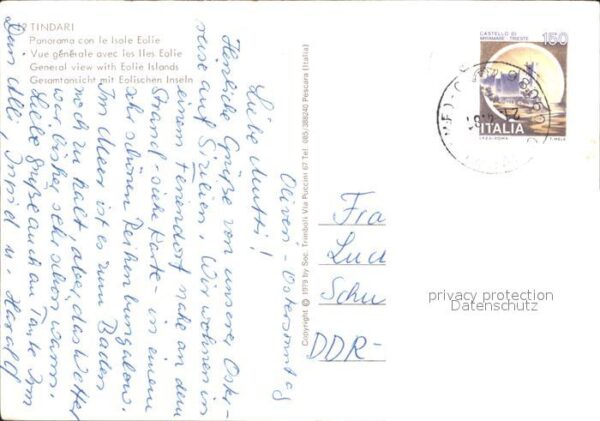 TINDARI
Panorama con le Isole Eolie
Vue générale avec les Iles Eolie
General view with Eolie Islands
Gesamtansicht mit Eolischen Inseln
Oliveri - Ostersonntag
Liebe Mutti!
Herzliche Grüße von unserer Oster-
reise auf Sizilien. Wir wohnen in
einem Feriendorf nahe an dem
Strand - siehe Karte - in einem
sehr schönen Reihenbungalow.
Im Meer ist es zum Baden
noch zu kalt, aber das Wetter
war bisher sehr schön warm.
Liebe Grüße auch an Tante Irm
Dein Ulli, Ingrid u. Harald
Copyright © 1979 by Soc. Trimboli Via Puccini 67 Tel. 085/388240 Pescara (Italia)
CASTELLO DI
MIRAMARE TRIESTE
150
ITALIA
Fra
Lud
Schu
DDR-
privacy protection
Datenschutz